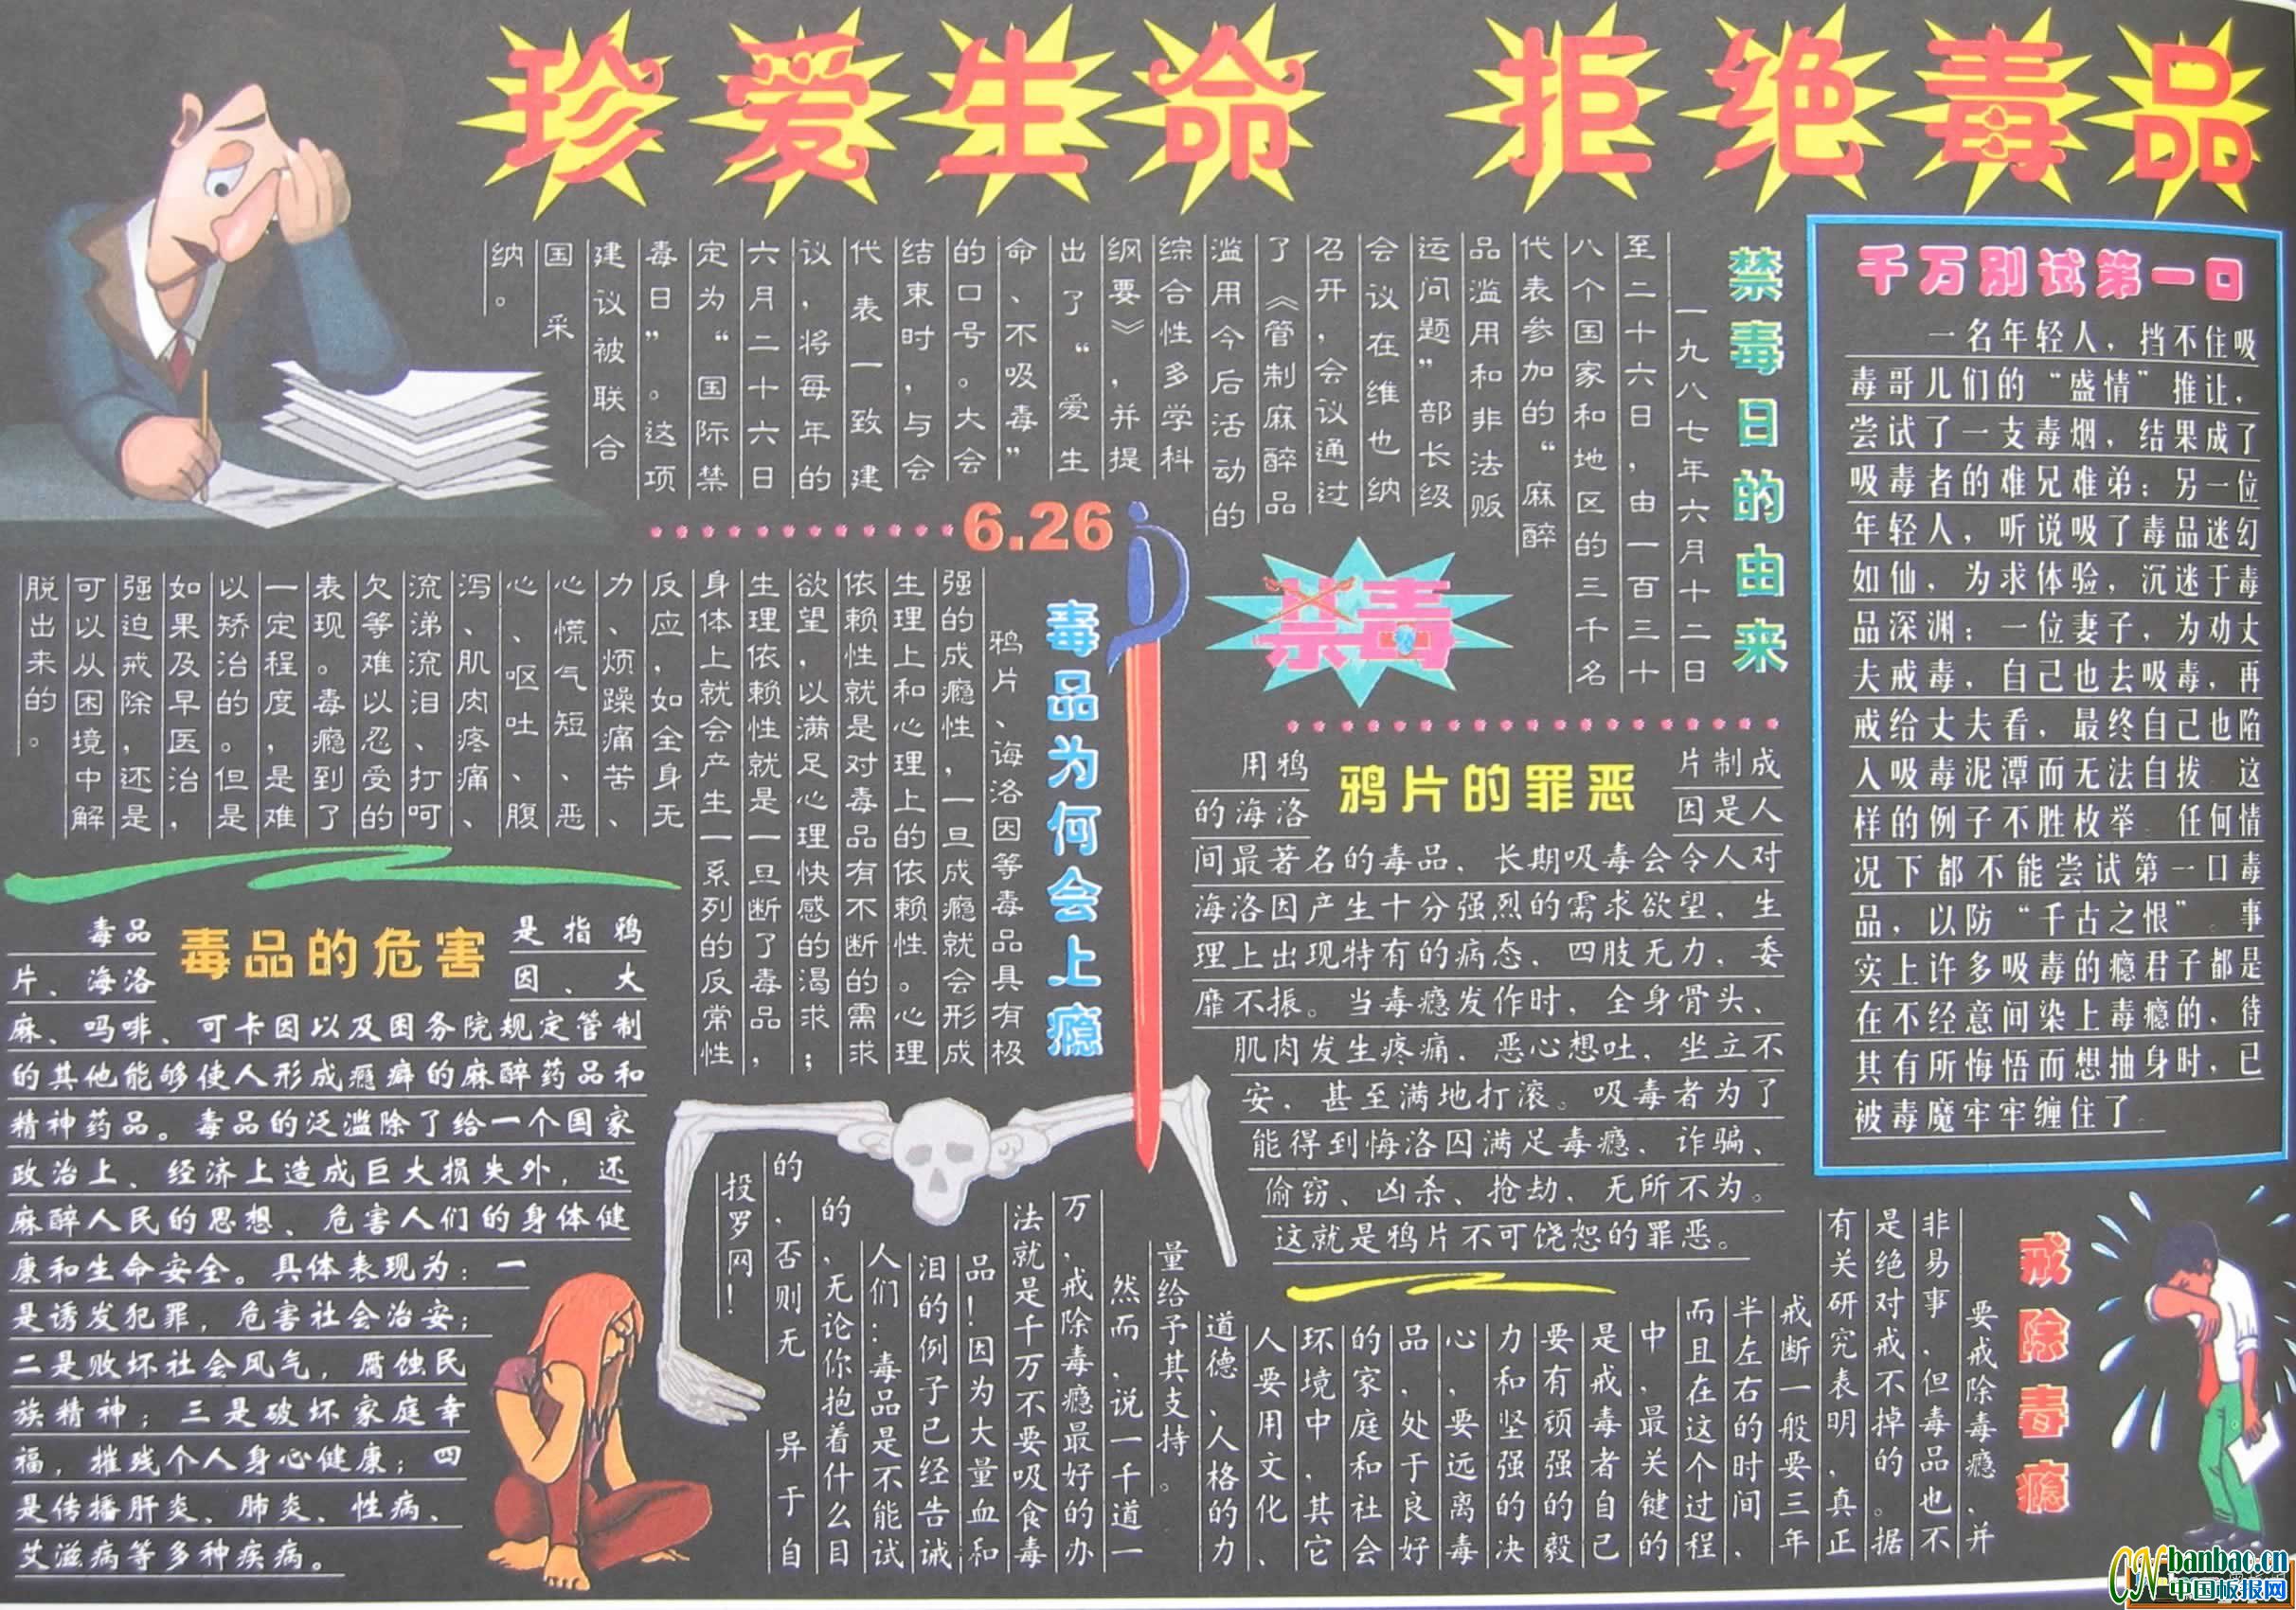 珍爱生命 拒绝毒品
禁毒日的由来
一九八七年六月十二日
至二十六日，由一百三十
八个国家和地区的三千名
代表参加的“麻醉
品滥用和非法贩
运问题”部长级
会议在维也纳
召开，会议通过
了《管制麻醉品
滥用今后活动的
综合性多学科
纲要》，并提
出了“爱生
命、不吸毒”
的口号。大会
结束时，与会
代表一致建
议，将每年的
六月二十六日
定为“国际禁
毒日”。这项
建议被联合
国采
纳。
千万别试第一口
一名年轻人，挡不住吸
毒哥儿们的“盛情”推让，
尝试了一支毒烟，结果成了
吸毒者的难兄难弟；另一位
年轻人，听说吸了毒品迷幻
如仙，为求体验，沉迷于毒
品深渊；一位妻子，为劝丈
夫戒毒，自己也去吸毒，再
戒给丈夫看，最终自己也陷
入吸毒泥潭而无法自拔 这
样的例子不胜枚举 任何情
况下都不能尝试第一口毒
品，以防“千古之恨”。事
实上许多吸毒的瘾君子都是
在不经意间染上毒瘾的，待
其有所悔悟而想抽身时，已
被毒魔牢牢缠住了
6.26
禁毒
毒品为何会上瘾
鸦片、海洛因等毒品具有极
强的成瘾性，一旦成瘾就会形成
生理上和心理上的依赖性。心理
依赖性就是对毒品有不断的需求
欲望，以满足心理快感的渴求；
生理依赖性就是一旦断了毒品，
身体上就会产生一系列的反常性
反应，如全身无
力、烦躁痛苦、
心慌气短、恶
心、呕吐、腹
泻、肌肉疼痛、
流涕流泪、打呵
欠等难以忍受的
表现。毒瘾到了
一定程度，是难
以矫治的。但是
如果及早医治，
强迫戒除，还是
可以从困境中解
脱出来的。
鸦片的罪恶
用鸦片制成
的海洛因是人
间最著名的毒品，长期吸毒会令人对
海洛因产生十分强烈的需求欲望，生
理上出现特有的病态，四肢无力，委
靡不振。当毒瘾发作时，全身骨头、
肌肉发生疼痛，恶心想吐，坐立不
安，甚至满地打滚。吸毒者为了
能得到海洛因满足毒瘾，诈骗、
偷窃、凶杀、抢劫，无所不为。
这就是鸦片不可饶恕的罪恶。
毒品的危害
毒品是指鸦
片、海洛因、大
麻、吗啡、可卡因以及国务院规定管制
的其他能够使人形成瘾癖的麻醉药品和
精神药品。毒品的泛滥除了给一个国家
政治上、经济上造成巨大损失外，还
麻醉人民的思想、危害人们的身体健
康和生命安全。具体表现为：一
是诱发犯罪，危害社会治安；
二是败坏社会风气，腐蚀民
族精神；三是破坏家庭幸
福，摧残个人身心健康；四
是传播肝炎、肺炎、性病、
艾滋病等多种疾病。
戒除毒瘾
要戒除毒瘾，并
非易事，但毒品也不
是绝对戒不掉的。据
有关研究表明，真正
戒断一般要三年
半左右的时间，
而且在这个过程
中，最关键的
是戒毒者自己
要有顽强的毅
力和坚强的决
心，要远离毒
品，处于良好
的家庭和社会
环境中，其它
人要用文化、
道德、人格的力
量给予其支持。
然而，说一千道一
万，戒除毒瘾最好的办
法就是千万不要吸食毒
品！因为大量血和
泪的例子已经告诫
人们：毒品是不能试
的，无论你抱着什么目
的，否则无异于自
投罗网！
CN banbao.cn
中国板报网